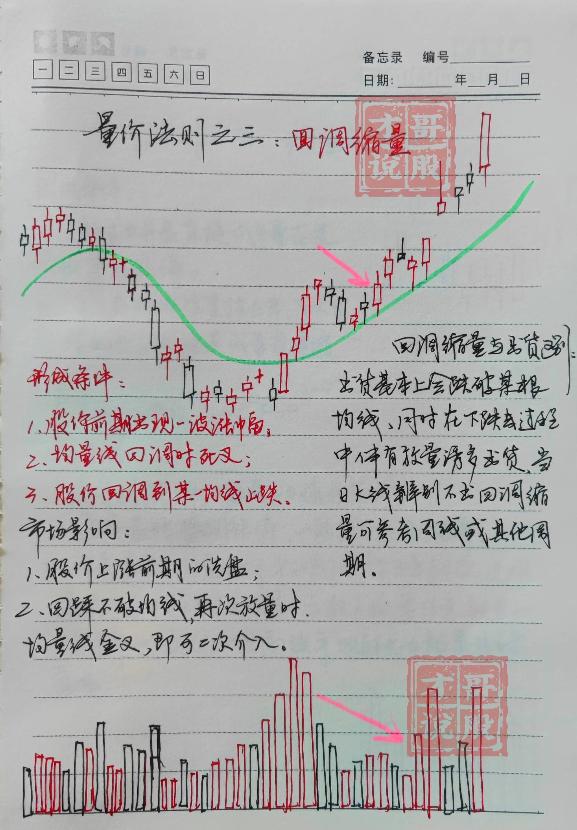 备忘录 编号
一 二 三 四 五 六 日
日期: 年 月 日
量价法则之三:回调缩量
才哥说股
回调缩量与出货区别:
形成条件:
1、股价前期出现一波涨幅后;
2、均量线回调时死叉;
3、股价回调到某一均线止跌.
出货基本上会跌破某根
均线、同时在下跌过程
中伴有放量诱多出货、当
日K线辨别不出回调缩
量可参考周线或其他周
期。
市场影响:
1、股价上涨前期的洗盘;
2、回踩不破均线,再次放量时.
均量线金叉,即可二次介入。
才哥说股